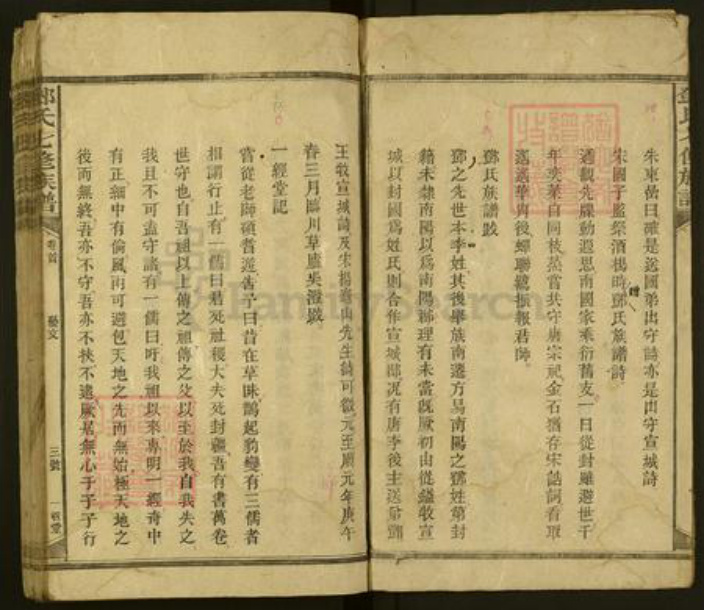 朱東嵒曰確是送國弟出守詩亦是出守宣城詩
宋國子監祭酒楊時贈鄧氏族譜詩
遹觀先牒動遐思南國家乘衍舊支一日從封雖避世千
年奕葉自同枝蒸嘗共守唐宗祀金石猶存宋誥詞看取
遙遙華胄後蟬聯纓振報君師
鄧氏族譜跋
鄧之先世本李姓其後舉族南遷方易南陽之鄧姓第封
籍未隸南陽以為南陽郡理有未當既厥初由從鎰牧宣
城以封國為姓氏則合作宣城郡况有唐李後主送弟鄧
王牧宣城詩及宋楊龜山先生詩可徵元至順元年庚午
春三月臨川草廬吳澄跋
一經堂記
嘗從老師碩耆遊告予曰昔在草昧鵲起豹變有三儒者
相謂行止有一儒曰君死社稷大夫死封疆吾有書萬卷
世守也自吾祖以上傳之祖傳之父以至於我自我失之
我且不可盍守諸有一儒曰吁我祖以來專明一經奇中
有正細中有倫風雨可避包天地之先而無始極天地之
後而無終吾亦不守吾亦不挾不遠厥居無心于于于行
鄧氏七修族譜
卷首
藝文
三號
FamilySearch